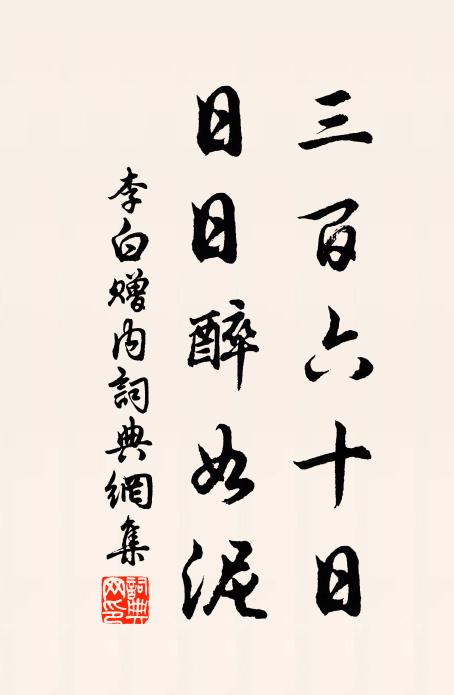 三百六十日
日日醉如泥
李白赠内詞典網集
詞典网印